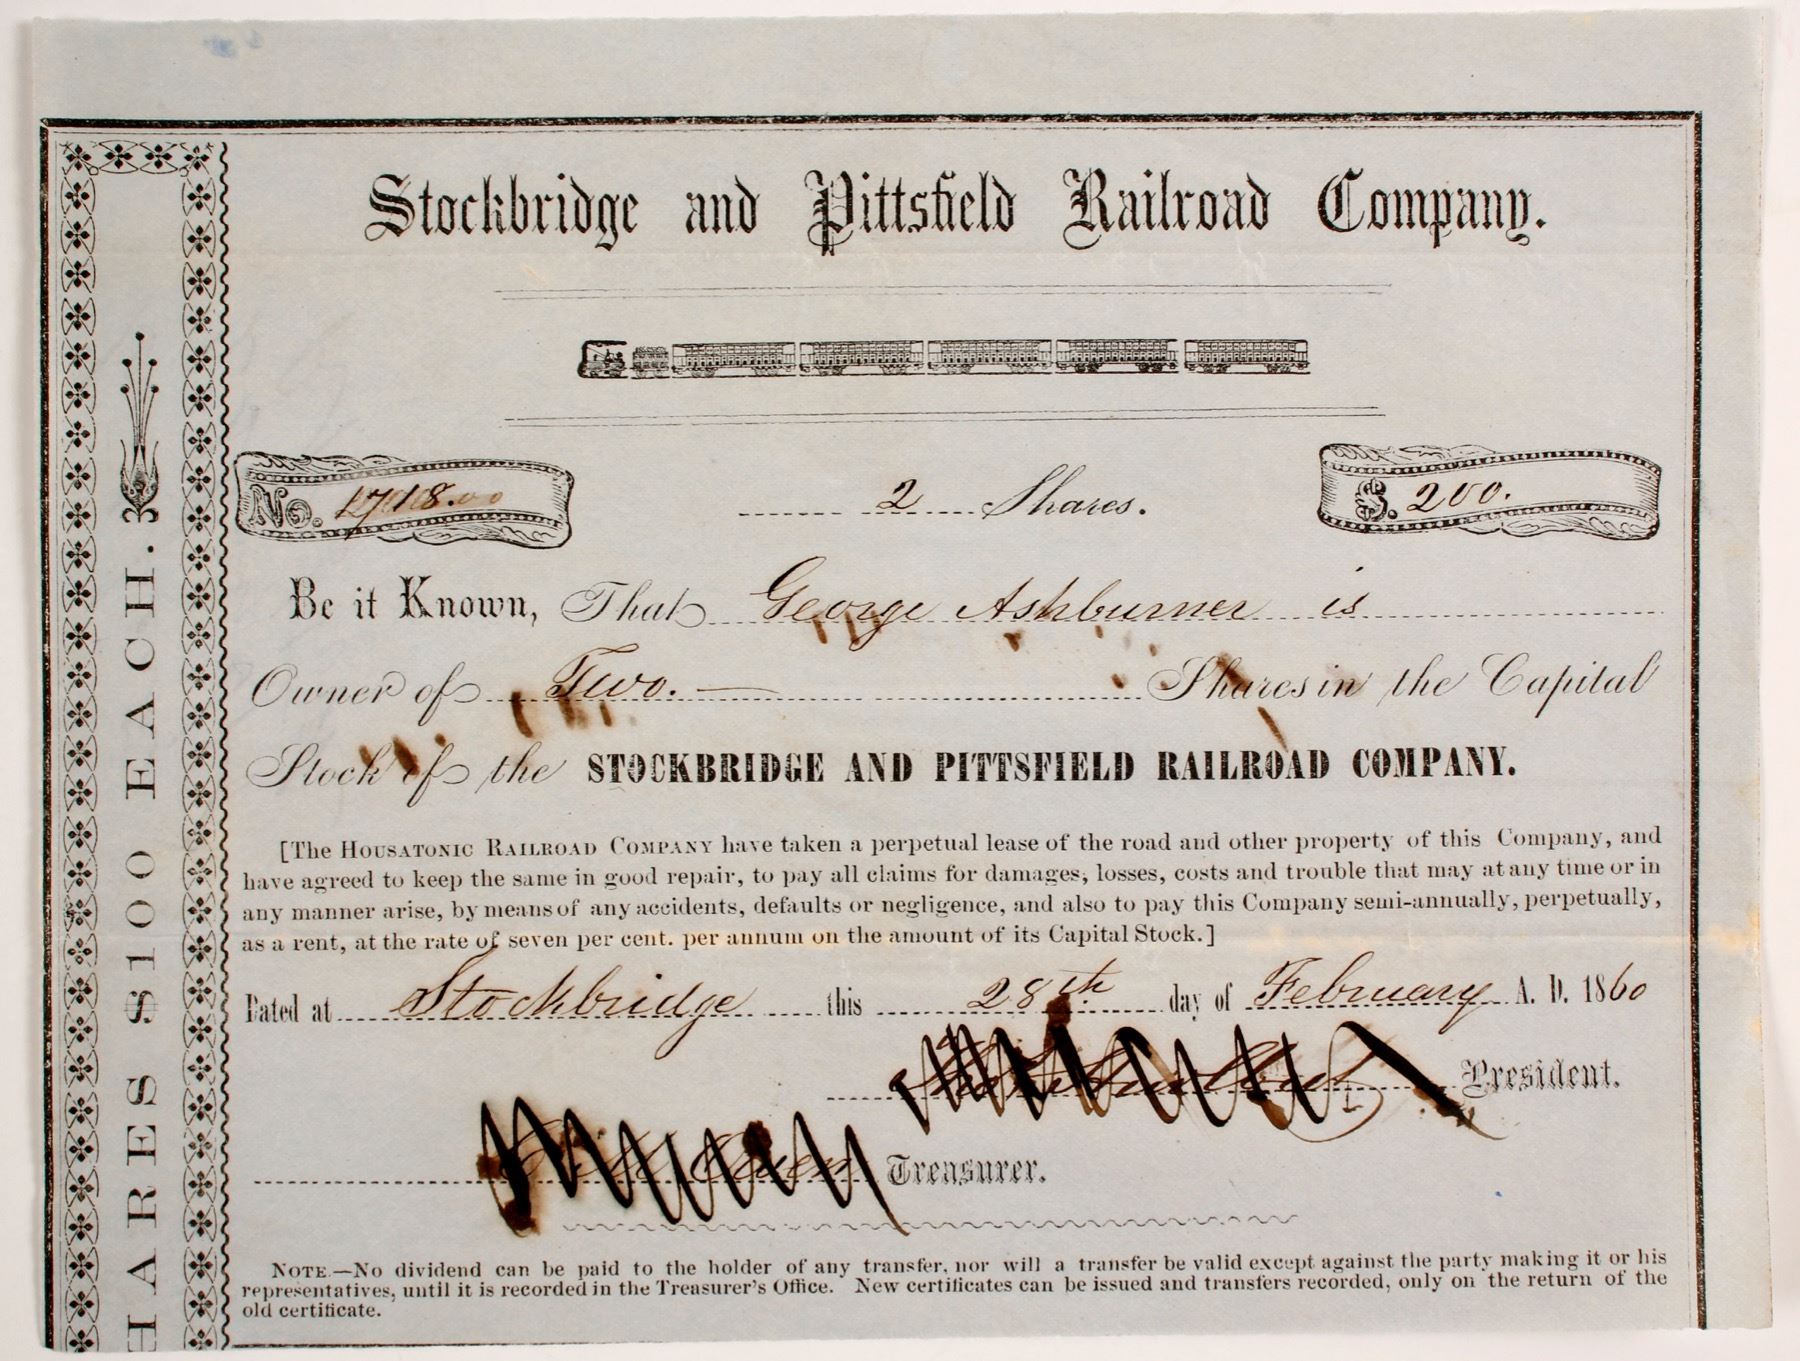 Stockbridge and Pittsfield Railroad Company.
No.
2 Shares.
$. 200.
Be it Known, That George Ashburner is
Owner of Two. — Shares in the Capital
Stock of the STOCKBRIDGE AND PITTSFIELD RAILROAD COMPANY.
[The HOUSATONIC RAILROAD COMPANY have taken a perpetual lease of the road and other property of this Company, and
have agreed to keep the same in good repair, to pay all claims for damages, losses, costs and trouble that may at any time or in
any manner arise, by means of any accidents, defaults or negligence, and also to pay this Company semi-annually, perpetually,
as a rent, at the rate of seven per cent. per annum on the amount of its Capital Stock.]
Dated at Stockbridge this 28th day of February A. D. 1860
President.
Treasurer.
NOTE.—No dividend can be paid to the holder of any transfer, nor will a transfer be valid except against the party making it or his
representatives, until it is recorded in the Treasurer's Office. New certificates can be issued and transfers recorded, only on the return of the
old certificate.
HARES $100 EACH.